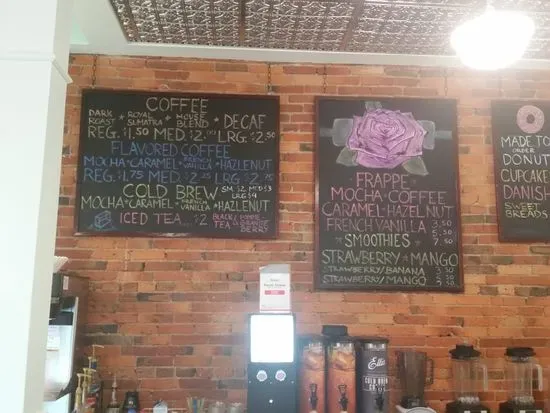 COFFEE
DARK ROAST * ROYAL SUMATRA * HOUSE BLEND * DECAF
REG. $1.50 MED. $2.00 LRG. $2.50
FLAVORED COFFEE
MOCHA * CARAMEL * FRENCH VANILLA * HAZLENUT
REG. $1.75 MED. $2.25 LRG. $2.75
COLD BREW SM. $2 MED $3 LRG $4
MOCHA * CARAMEL * FRENCH VANILLA * HAZLENUT
ICED TEA... $2 BLACK TEA
FRAPPE
MOCHA * COFFEE
CARAMEL * HAZELNUT
FRENCH VANILLA
SMOOTHIES
STRAWBERRY * MANGO
STRAWBERRY/BANANA
STRAWBERRY/MANGO
MADE TO
ORDER
DONUT
CUPCAKE
DANISH
SWEET
BREADS
COLD BREW